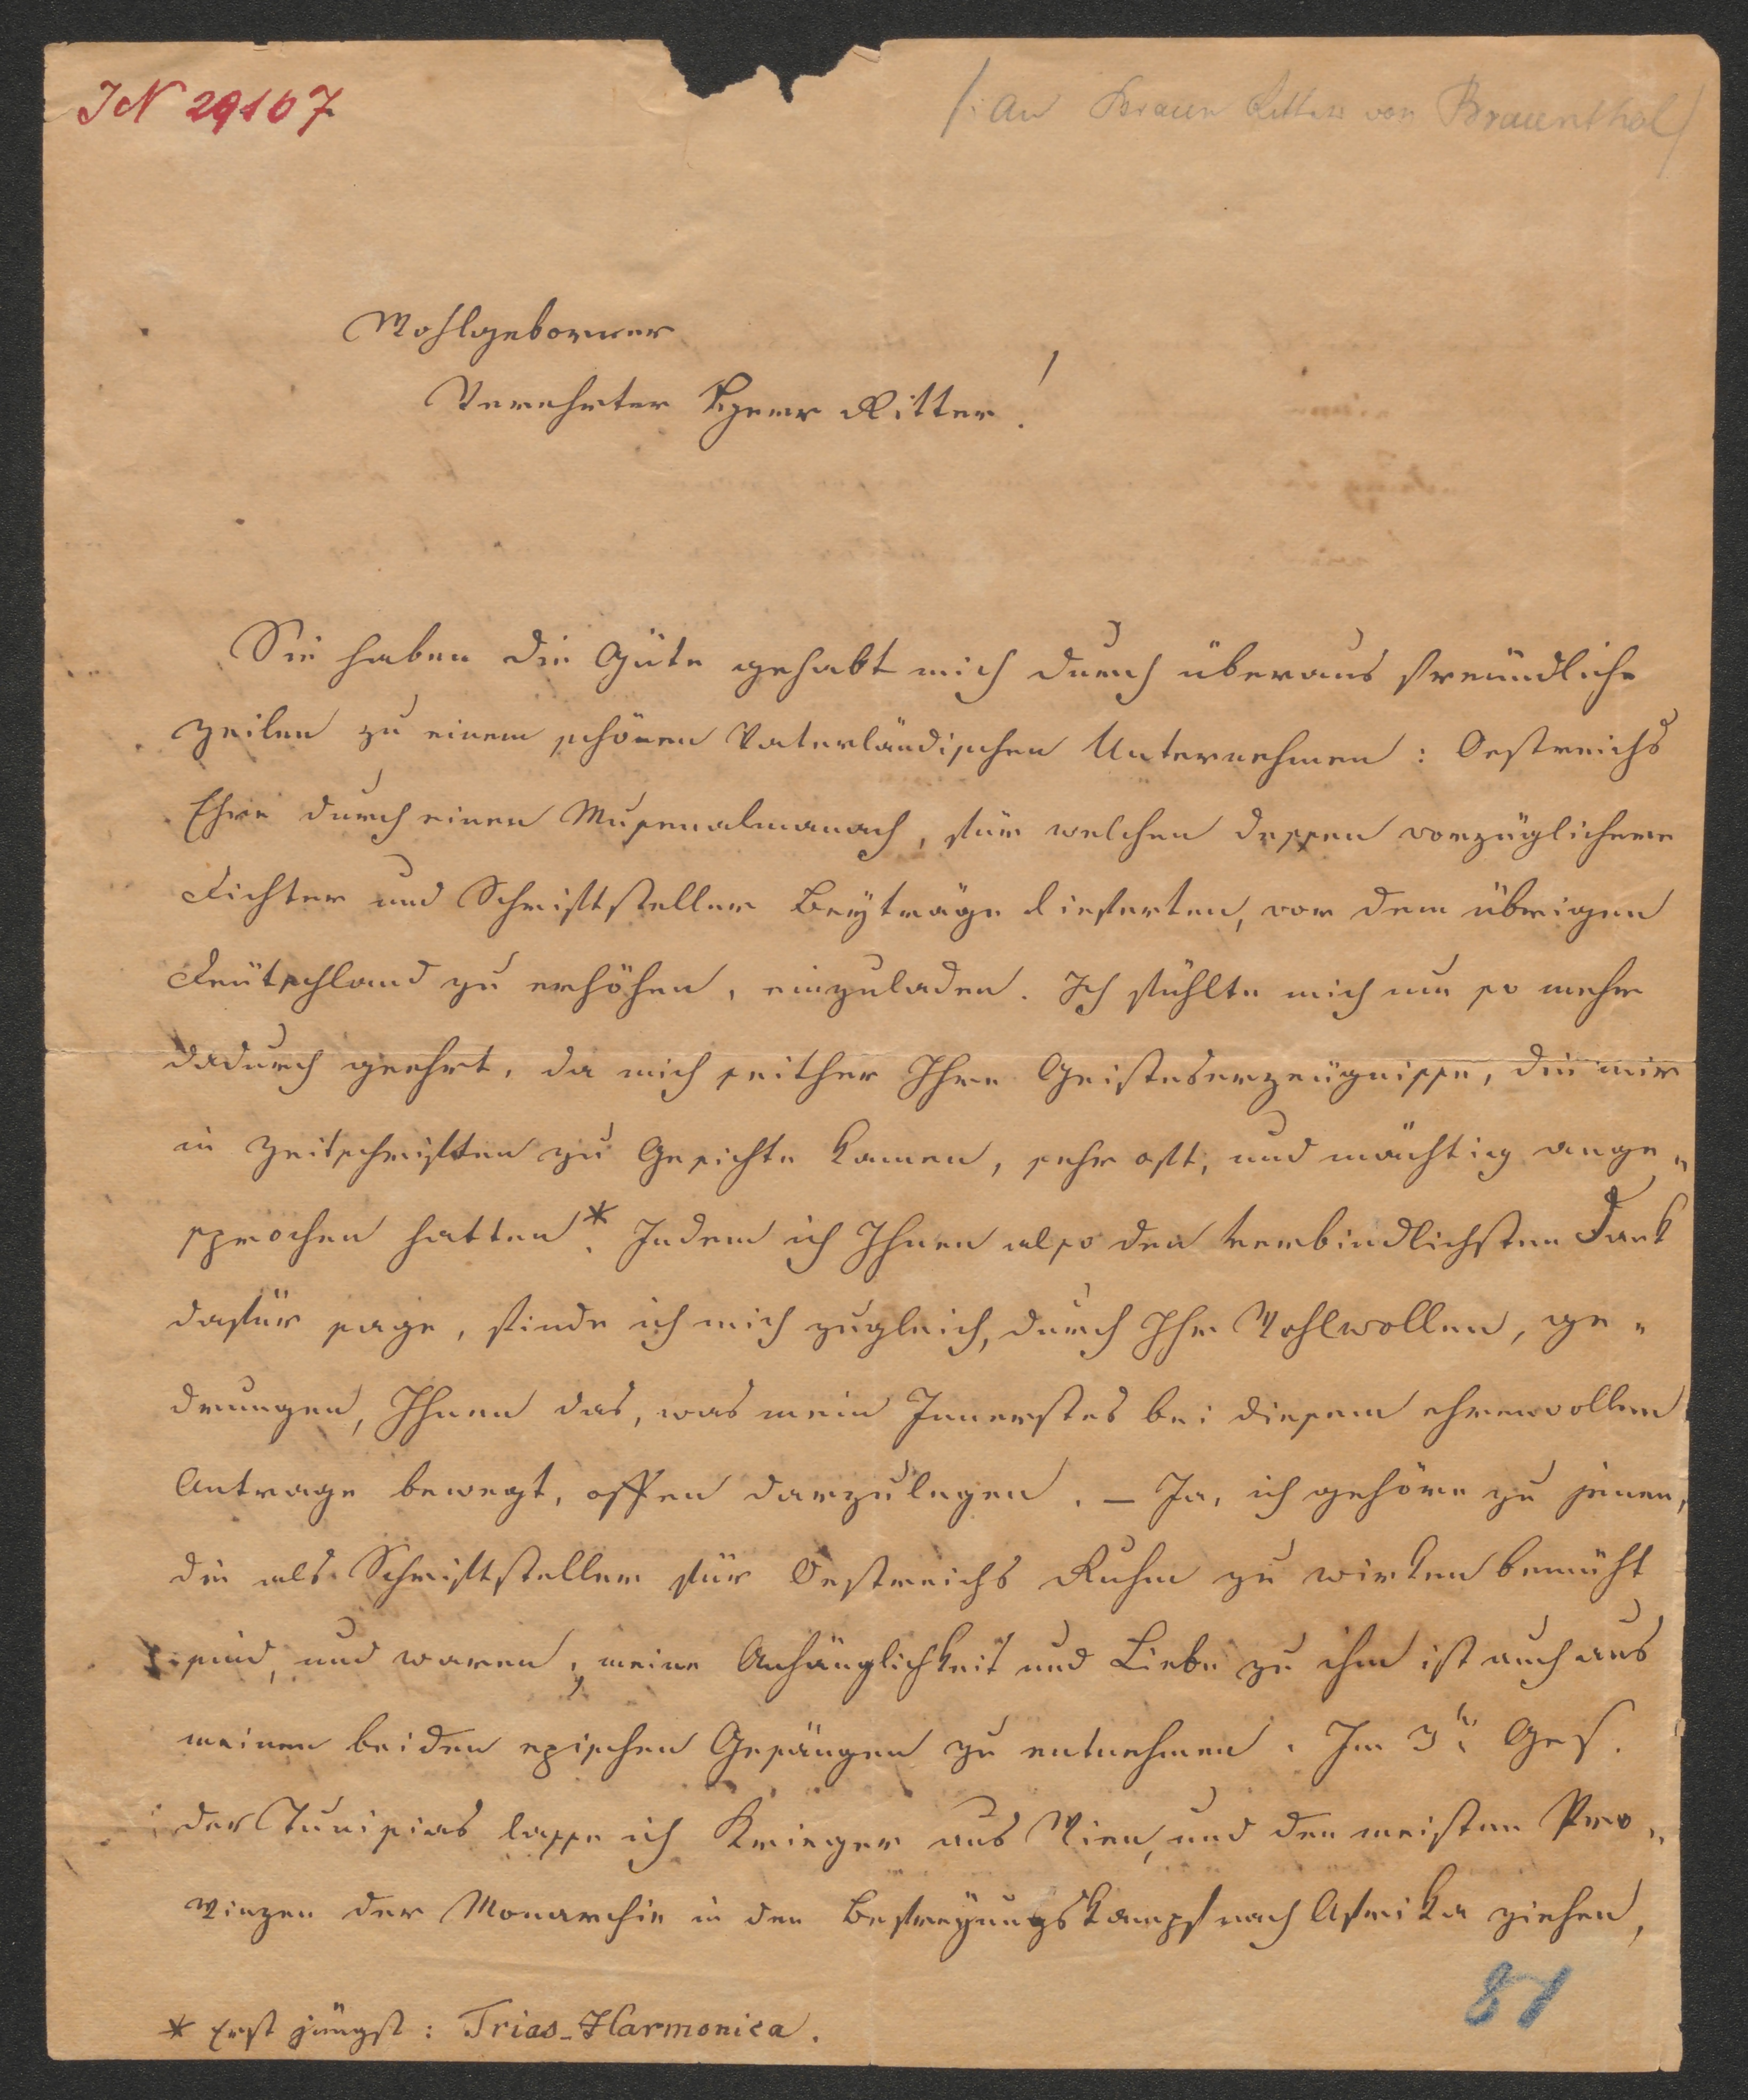 IN 29167
/: An Braun Ritter von Braunthal /
Wohlgeborner
Verehrter Herr Ritter!
Sie haben die Güte gehabt mich durch überaus freündliche
Zeilen zu einem schönen Vaterländischen Unternehmen: Oestreichs
Ehre durch einen Musenalmanach, für welchen dessen vorzüglichere
Dichter und Schriftsteller Beyträge lieferten, vor dem übrigen
Deütschland zu erhöhen, einzuladen. Ich fühlte mich um so mehr
dadurch geehrt, da mich seither Ihre Geisteserzeügnisse, die mir
in Zeitschriften zu Gesichte kamen, sehr oft, und mächtig ange„
sprochen hatten*. Indem ich Ihnen also den verbindlichsten Dank
dafür sage, finde ich mich zugleich, durch Ihr Wohlwollen, ge„
drungen, Ihnen das, was mein Innerstes bei diesem ehrenvollen
Antrage bewegt, offen darzulegen. – Ja, ich gehöre zu jenen,
die als Schriftsteller für Oestreichs Ruhm zu wirken bemüht
sind, und waren; meine Anhänglichkeit und Liebe zu ihm ist auch aus
meinen beiden epischen Gesängen zu entnehmen. Im 3n Ges.
der Tunisias lasse ich Krieger aus Wien, und den meisten Pro„
vinzen der Monarchie in den Befreyungskampf nach Afrika ziehen,
* Erst jüngst: Trias-Harmonica.
81